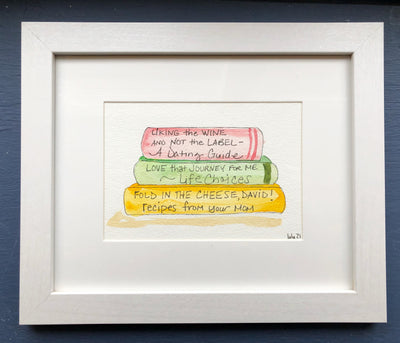 LIKING the WINE
AND NOT the LABEL –
A Dating Guide
LOVE that JOURNEY FOR ME
~ Life Choices
FOLD IN THE CHEESE, DAVID!
recipes from your MOM